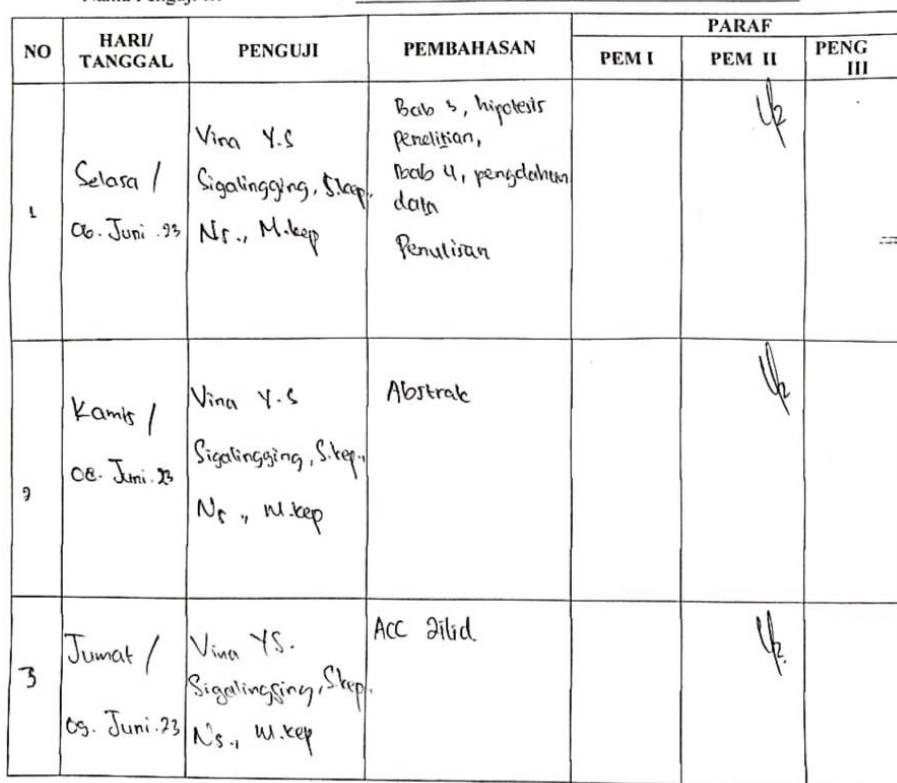 NO HARI/ TANGGAL PENGUJI PEMBAHASAN PARAF
PEM I PEM II PENG III
1
Selasa /
06. Juni .23
Vina Y.S
Sigalingging, S.kep.,
Ns., M.kep
Bab 3, hipotesis
penelitian,
Bab 4, pengolahan
data
Penulisan
2
Kamis /
08. Juni .23
Vina Y.S
Sigalingging, S.kep.,
Ns., M.kep
Abstrak
3
Jumat /
09. Juni .23
Vina YS.
Sigalingging, S.kep.
Ns., M.kep
ACC Jilid